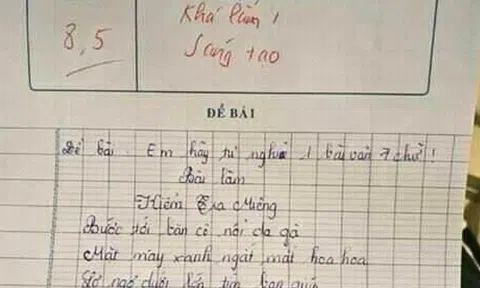 8,5
Khá lắm !
Sáng tạo
ĐỀ BÀI
Đề bài : Em hãy tự nghĩ 1 bài văn 7 chữ !
Bài làm
Kiểm Tra Miệng
Bước tới bàn cô nổi da gà
Mặt mày xanh ngắt mắt hoa hoa
ngơ dưới lớp tìm bạn